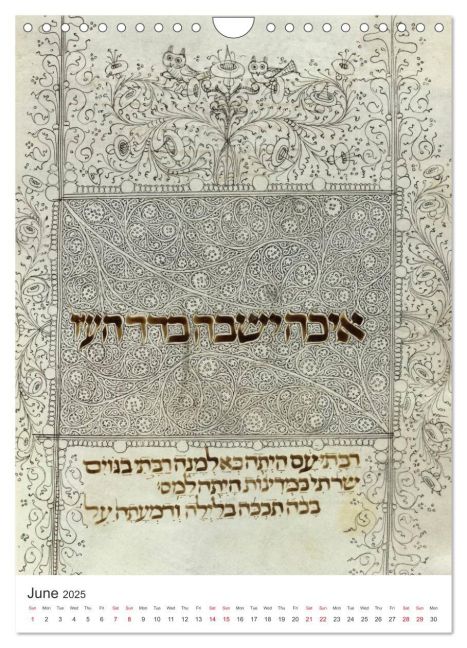 איכה ישבה בדד העיר
רבתי עם היתה כאלמנה רבתי בגוים
שרתי במדינות היתה למס
בכה תבכה בלילה ודמעתה על
June 2025
Sun Mon Tue Wed Thu Fri Sat Sun Mon Tue Wed Thu Fri Sat Sun Mon Tue Wed Thu Fri Sat Sun Mon Tue Wed Thu Fri Sat Sun Mon
1 2 3 4 5 6 7 8 9 10 11 12 13 14 15 16 17 18 19 20 21 22 23 24 25 26 27 28 29 30